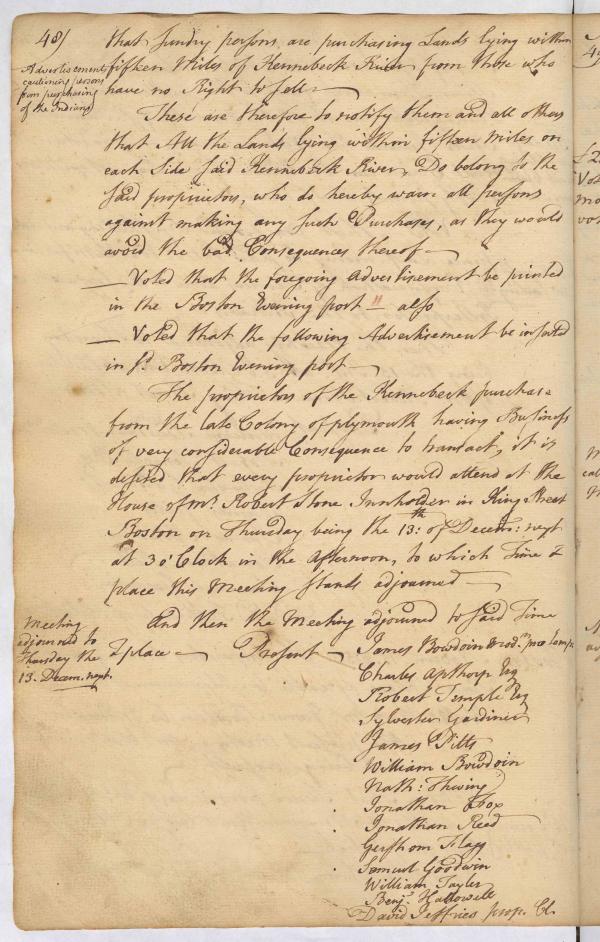 48/
Advertisement
cautioning persons
from purchasing
of the Indians
that sundry persons are purchasing Lands lying within
fifteen Miles of Kennebeck River from those who
have no Right to sell —
These are therefore to notify them and all others
that All the Lands lying within fifteen Miles on
each Side said Kennebeck River, Do belong to the
said proprietors, who do hereby warn all persons
against making any such Purchases, as they would
avoid the bad Consequences thereof —
— Voted that the foregoing Advertisement be printed
in the Boston Evening post — also
— Voted that the following Advertisement be inserted
in sd. Boston Evening post —
The proprietors of the Kennebeck purchase
from the late Colony of plymouth having Business
of very considerable Consequence to transact, it is
desired that every proprietor would attend at the
House of mr. Robert Stone Innholder in King Street
Boston on Thursday being the 13th: of Decem: next
at 3 o'Clock in the Afternoon, to which Time &
place this Meeting stands adjourned —
And then the Meeting adjourned to said Time
& place — Present —
Meeting
adjourned to
Thursday the
13. Decem. next.
James Bowdoin Modr. pro temp.
Charles Apthorp Esq
Robert Temple Esq
Sylvester Gardiner
James Pitts
William Bowdoin
Nath: Thwing
Jonathan Fox
Jonathan Reed
Gershom Flagg
Samuel Goodwin
William Tayler
Benj. Hallowell
David Jeffries prop. Cl.